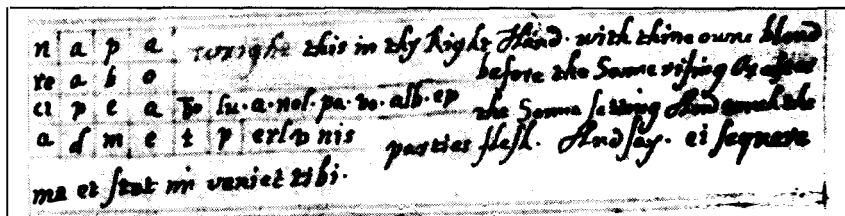 n a p a wright this in thy Right Hand. with thine owne bloud
re a b o before the Sonne rising Or after
ci p e a lu. a. nol. pa. vo. alb. ep the Sonne setting And touch the
a d m e t p erlv nis parties flesh. And say. ei sequere
me et stat im veniet tibi.